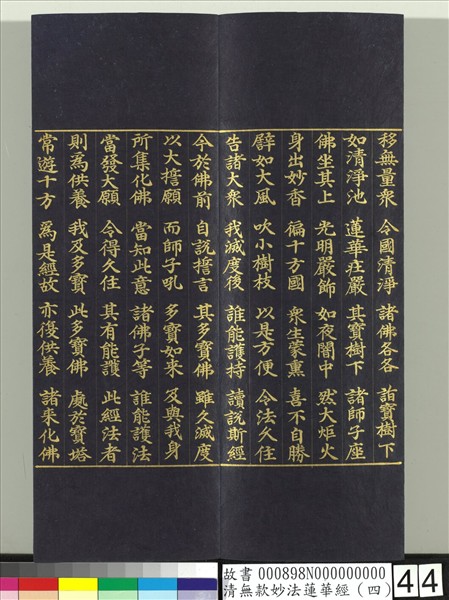 移無量衆 令國清淨 諸佛各各 詣寶樹下
如清淨池 蓮華莊嚴 其寶樹下 諸師子座
佛坐其上 光明嚴飾 如夜闇中 然大炬火
身出妙香 徧十方國 衆生蒙熏 喜不自勝
譬如大風 吹小樹枝 以是方便 令法久住
告諸大衆 我滅度後 誰能護持 讀說斯經
今於佛前 自說誓言 其多寶佛 雖久滅度
以大誓願 而師子吼 多寶如來 及與我身
所集化佛 當知此意 諸佛子等 誰能護法
當發大願 令得久住 其有能護 此經法者
則為供養 我及多寶 此多寶佛 處於寶塔
常遊十方 為是經故 亦復供養 諸來化佛
故書 000898N000000000
清無款妙法蓮華經(四)
44